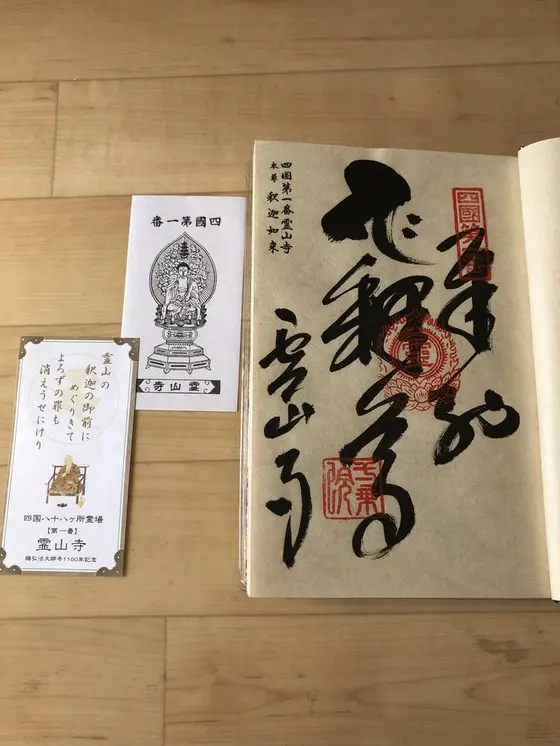 四国第一番霊山寺
本尊 釈迦如来
奉納
霊山寺
四國第一番
霊山寺
霊山の
釈迦の御前に
めぐりきて
よろずの罪も
消えうせにけり
四国八十八ヶ所霊場
【第一番】
霊山寺
賜弘法大師号1100年記念